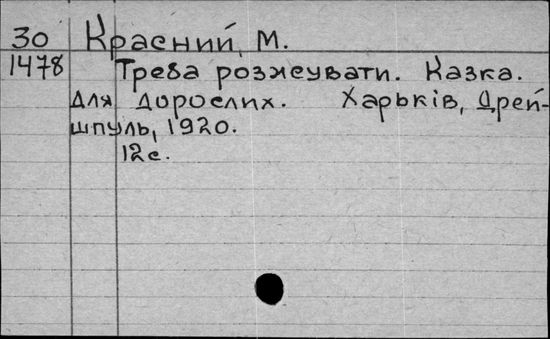 30 Красний, М.
1478 Треба розжувати. Казка.
Для дорослих. Харьків, Дрей-
шпуль, 1920.
12с.